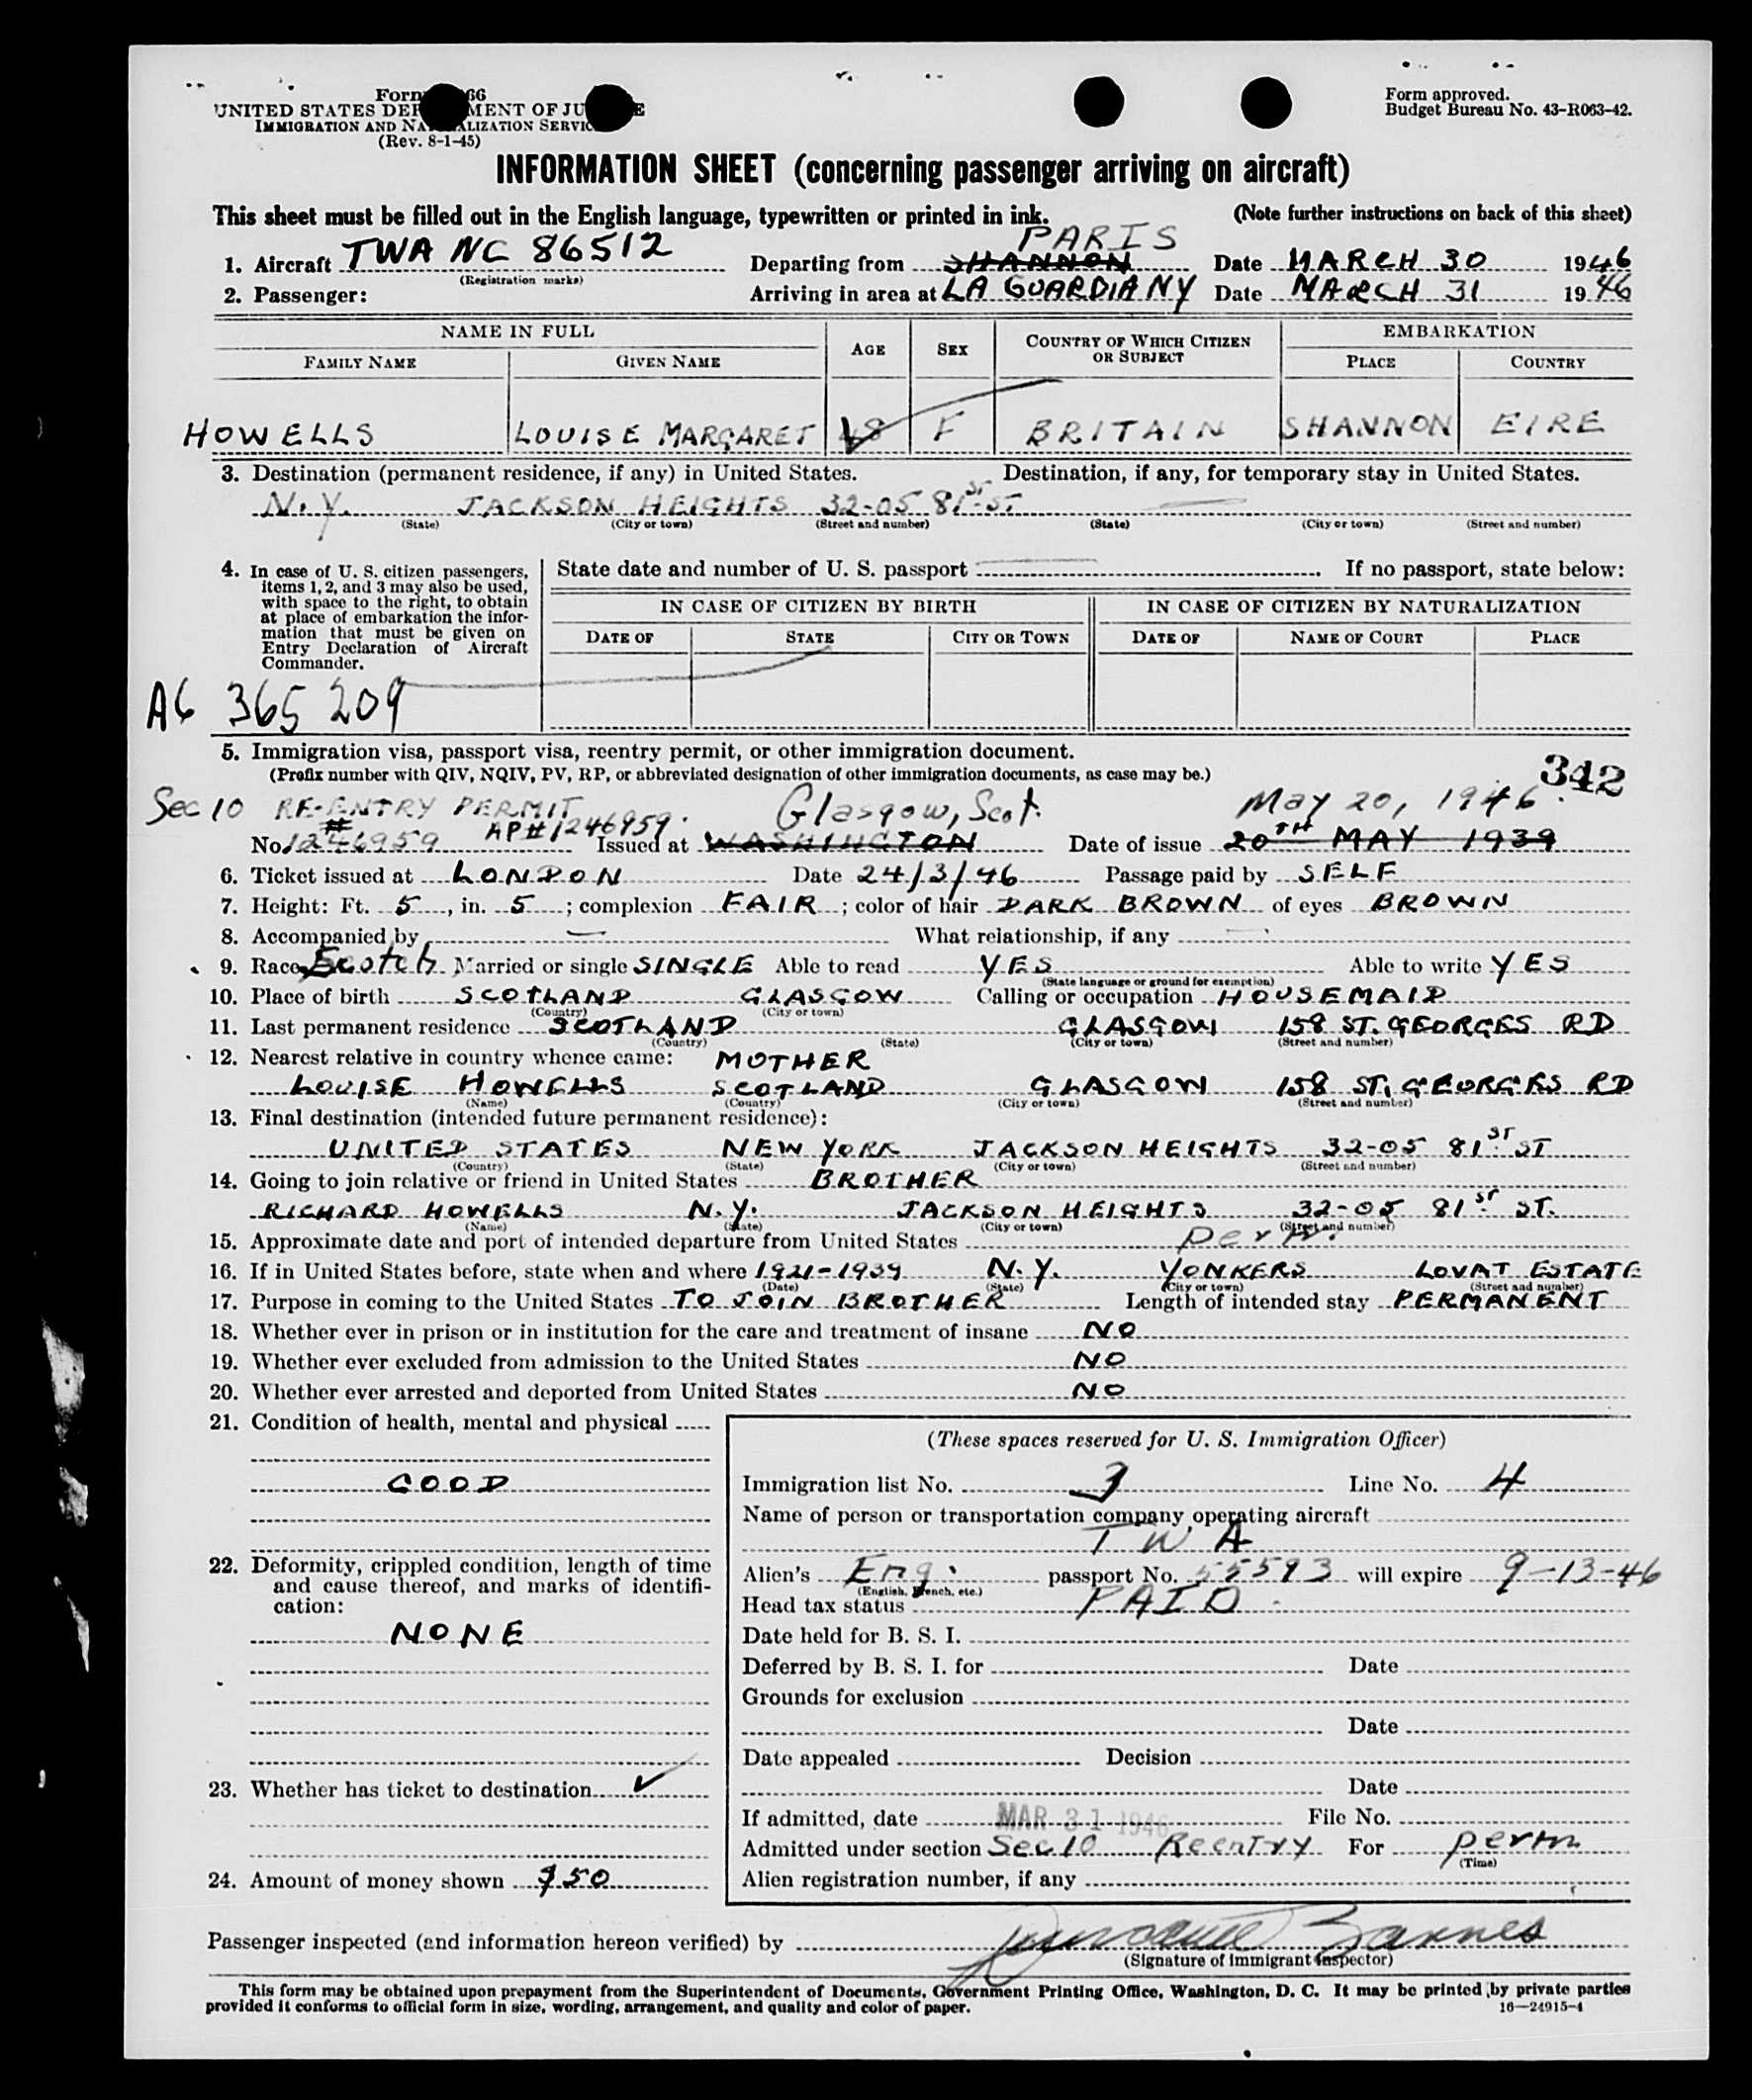 Form 66
UNITED STATES DEP MENT OF JU E
IMMIGRATION AND NA ALIZATION SERVIC
(Rev. 8-1-45)
Form approved.
Budget Bureau No. 43-R063-42.
INFORMATION SHEET (concerning passenger arriving on aircraft)
This sheet must be filled out in the English language, typewritten or printed in ink. (Note further instructions on back of this sheet)
PARIS
1. Aircraft TWA NC 86512 Departing from SHANNON Date MARCH 30 1946
(Registration marks)
2. Passenger: Arriving in area at LA GUARDIA NY Date MARCH 31 1946
NAME IN FULL AGE SEX COUNTRY OF WHICH CITIZEN OR SUBJECT EMBARKATION
FAMILY NAME GIVEN NAME PLACE COUNTRY
HOWELLS LOUISE MARGARET 48 F BRITAIN SHANNON EIRE
3. Destination (permanent residence, if any) in United States. Destination, if any, for temporary stay in United States.
N.Y. JACKSON HEIGHTS 32-05 81ST ST
(State) (City or town) (Street and number) (State) (City or town) (Street and number)
4. In case of U. S. citizen passengers,
items 1, 2, and 3 may also be used,
with space to the right, to obtain
at place of embarkation the infor-
mation that must be given on
Entry Declaration of Aircraft
Commander.
State date and number of U. S. passport If no passport, state below:
IN CASE OF CITIZEN BY BIRTH IN CASE OF CITIZEN BY NATURALIZATION
DATE OF STATE CITY OR TOWN DATE OF NAME OF COURT PLACE
A6 365 209
5. Immigration visa, passport visa, reentry permit, or other immigration document.
(Prefix number with QIV, NQIV, PV, RP, or abbreviated designation of other immigration documents, as case may be.) 342
Sec 10 RE-ENTRY PERMIT Glasgow, Scot. May 20, 1946.
No. #1246959 AP#1246959. Issued at WASHINGTON Date of issue 20TH MAY 1939
6. Ticket issued at LONDON Date 24/3/46 Passage paid by SELF
7. Height: Ft. 5, in. 5; complexion FAIR; color of hair DARK BROWN of eyes BROWN
8. Accompanied by — What relationship, if any —
9. Race Scotch Married or single SINGLE Able to read YES Able to write YES
(State language or ground for exemption)
10. Place of birth SCOTLAND GLASGOW Calling or occupation HOUSEMAID
(Country) (City or town)
11. Last permanent residence SCOTLAND GLASGOW 158 ST. GEORGES RD
(Country) (State) (City or town) (Street and number)
12. Nearest relative in country whence came: MOTHER
LOUISE HOWELLS SCOTLAND GLASGOW 158 ST. GEORGES RD
(Name) (Country) (City or town) (Street and number)
13. Final destination (intended future permanent residence):
UNITED STATES NEW YORK JACKSON HEIGHTS 32-05 81ST ST
(Country) (State) (City or town) (Street and number)
14. Going to join relative or friend in United States BROTHER
RICHARD HOWELLS N.Y. JACKSON HEIGHTS 32-05 81ST ST.
(Name) (State) (City or town) (Street and number)
15. Approximate date and port of intended departure from United States perm.
16. If in United States before, state when and where 1921-1939 N.Y. YONKERS LOVAT ESTATE
(Date) (State) (City or town) (Street and number)
17. Purpose in coming to the United States TO JOIN BROTHER Length of intended stay PERMANENT
18. Whether ever in prison or in institution for the care and treatment of insane NO
19. Whether ever excluded from admission to the United States NO
20. Whether ever arrested and deported from United States NO
21. Condition of health, mental and physical
GOOD
22. Deformity, crippled condition, length of time
and cause thereof, and marks of identifi-
cation:
NONE
23. Whether has ticket to destination ✓
24. Amount of money shown $50
(These spaces reserved for U. S. Immigration Officer)
Immigration list No. 3 Line No. 4
Name of person or transportation company operating aircraft
TWA
Alien's Eng. passport No. 55593 will expire 9-13-46
(English, French, etc.)
Head tax status PAID
Date held for B. S. I.
Deferred by B. S. I. for Date
Grounds for exclusion
Date
Date appealed Decision
Date
If admitted, date MAR 31 1946 File No.
Admitted under section Sec 10 Reentry For perm
(Time)
Alien registration number, if any
Passenger inspected (and information hereon verified) by Barnes
(Signature of Immigrant Inspector)
This form may be obtained upon prepayment from the Superintendent of Documents, Government Printing Office, Washington, D. C. It may be printed by private parties
provided it conforms to official form in size, wording, arrangement, and quality and color of paper. 16—24915-4